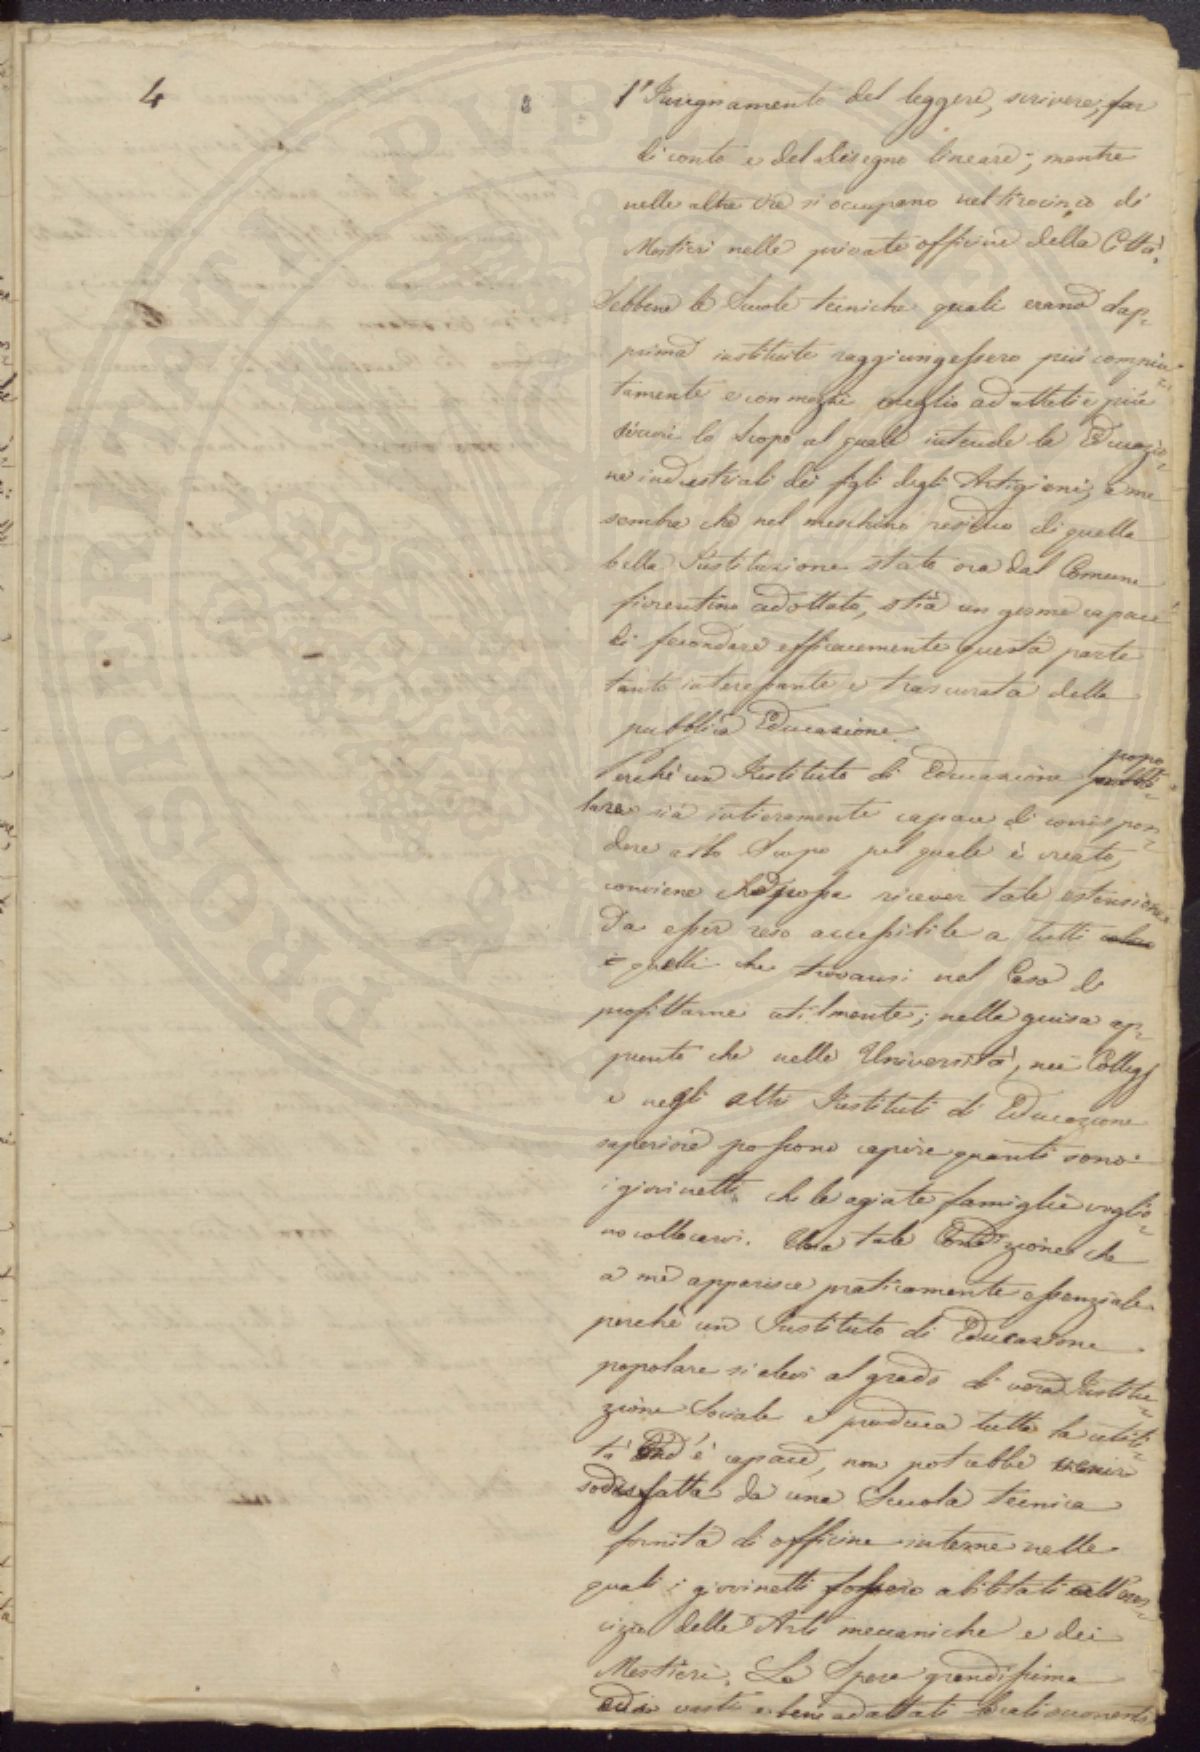 4
l'Insegnamento del leggere, scrivere, far
di conto e del disegno lineare; mentre
nelle altre Ore si occupano nel tirocinio di
Mestieri nelle private officine della Città.
Sebbene le Scuole tecniche quali erano dap-
prima instituite raggiungessero più compiu-
tamente e con mezzi meglio adattati e più
sicuri lo Scopo al quale intende la Educazio-
ne industriali dei figli degli Artigiani, a me
sembra che nel meschino residuo di quella
bella Instituzione stato ora dal Comune
fiorentino adottato, stia un germe capace
di fecondare efficacemente questa parte
tanto interessante e trascurata della
pubblica Educazione.
Perchè un Instituto di Educazione popo
lare sia intieramente capace di corrispon-
dere allo Scopo pel quale è creato,
conviene che possa ricever tale estensione
da esser reso accessibile a tutti
quelli che trovansi nel Caso di
profittarne utilmente; nella guisa ap-
punto che nelle Università, nei Collegj
e negli altri Instituti di Educazione
superiore possono capire quanti sono
i giovinetti che le agiate famiglie voglio-
no collocarvi. Una tale Condizione che
a me apparisce praticamente essenziale
perchè un Instituto di Educazione
popolare si elevi al grado di vera Institu-
zione Sociale e produca tutta la utili-
tà ond'è capace, non potrebbe venir
sodisfatta da una Scuola tecnica
fornita di officine interne nelle
quali i giovinetti fossero abilitati all'eser-
cizio delle Arti meccaniche e dei
Mestieri. La Spesa grandissima
di vasti e bene adattati locali occorrenti